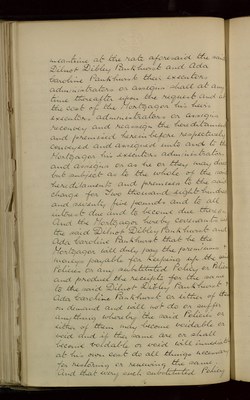 meantime at the rate aforesaid the said
Delnot Dibley Pankhurst and Ada
Caroline Pankhurst their executors
administrators or assigns shall at any
time thereafter upon the request and at
the cost of the Mortgagor his heirs
executors administrators or assigns
reconvey and reassign the hereditaments
and premises hereinbefore respectively
conveyed and assigned unto and to the
Mortgagor his executors administrators
and assigns or as he or they may direct
but subject as to the whole of the
hereditaments and premises to the
charge for Two thousand eight hundred
and seventy five pounds and to all
interest due and to become due thereon
And the Mortgagor hereby covenants with
the said Delnot Dibley Pankhurst and
Ada Caroline Pankhurst that he the
Mortgagor will duly pay the premiums
moneys payable for keeping up the said
Policies or any substituted Policy or Policies
and produce the receipts for the same
to the said Delnot Dibley Pankhurst
Ada Caroline Pankhurst or either of them
on demand and will not do or suffer
anything whereby the said Policies or
either of them may become voidable or
void and if the same are or shall
become voidable or void will immediately
at his own cost do all things necessary
for restoring or renewing the same
And that every such substituted Policy